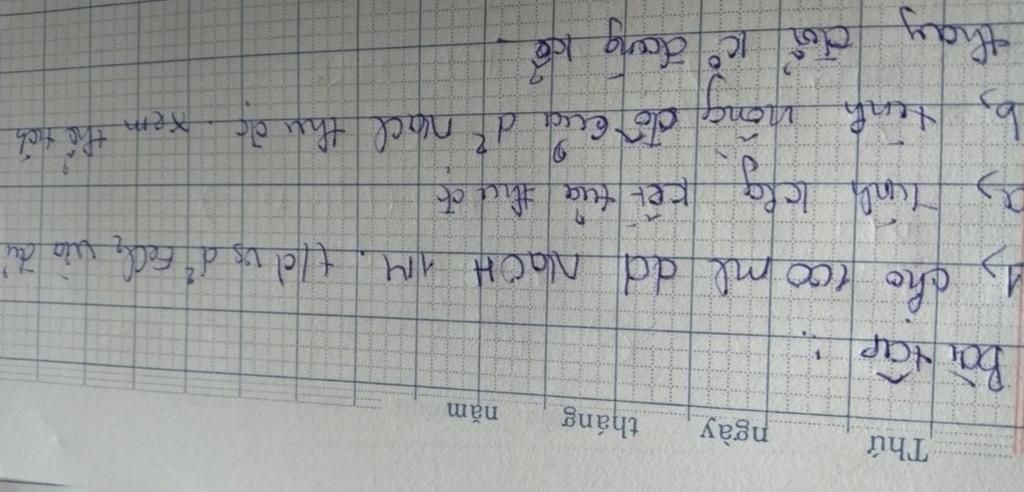 Thứ ngày tháng năm
Bài tập :
1, cho 100 ml dd NaOH 1M. t/d vs d² FeCl₂ vừa đủ
a, Tính klg kết tủa thu đc
b, tính nồng độ của d² NaCl thu đc. xem thể tích
thay đổi ko đáng kể